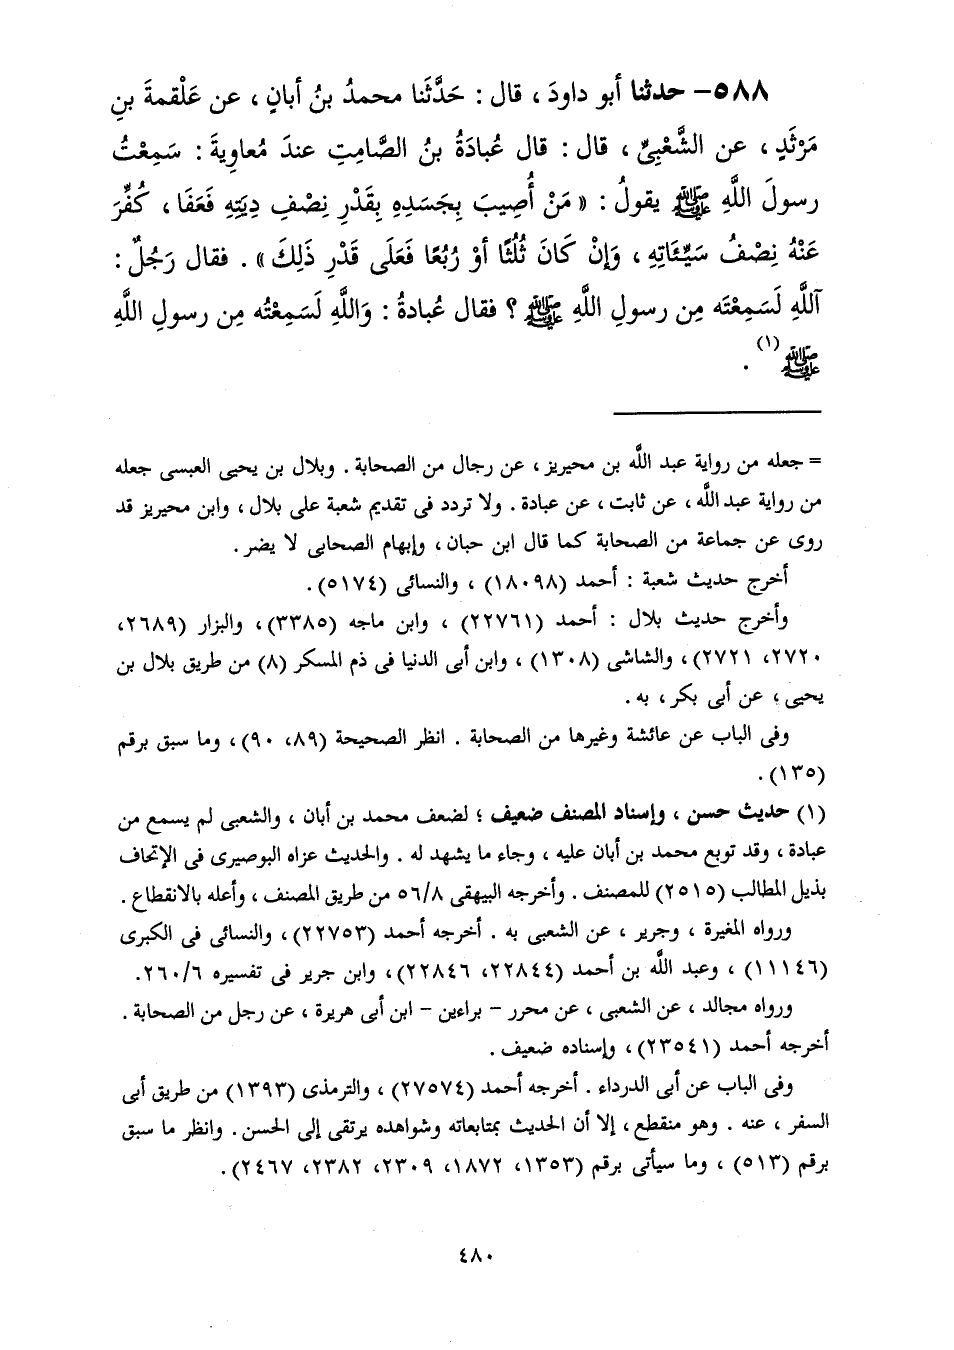 ٥٨٨- حدثنا أبو داودَ ، قال : حَدَّثَنا محمدُ بنُ أبانٍ ، عن عَلْقمةَ بنِ
مَرْثَدٍ ، عن الشَّعْبِيِّ ، قال : قال عُبادَةُ بنُ الصَّامِتِ عندَ مُعاوِيةَ : سَمِعْتُ
رسولَ اللَّهِ ﷺ يقولُ : « مَنْ أُصِيبَ بِجَسَدِهِ بِقَدْرِ نِصْفِ دِيَتِهِ فَعَفَا ، كُفِّرَ
عَنْهُ نِصْفُ سَيِّئَاتِهِ ، وَإِنْ كَانَ ثُلُثًا أوْ رُبُعًا فَعَلَى قَدْرِ ذَلِكَ » . فقال رَجُلٌ :
آللَّهِ لَسَمِعْتَه مِن رسولِ اللَّهِ ﷺ ؟ فقال عُبادةُ : وَاللَّهِ لَسَمِعْتُه مِن رسولِ اللَّهِ
ﷺ (١) .
= جعله من رواية عبد اللَّه بن محيريز ، عن رجال من الصحابة . وبلال بن يحيى العبسى جعله
من رواية عبد اللَّه ، عن ثابت ، عن عبادة . ولا تردد فى تقديم شعبة على بلال ، وابن محيريز قد
روى عن جماعة من الصحابة كما قال ابن حبان ، وإبهام الصحابى لا يضر .
أخرج حديث شعبة : أحمد (١٨٠٩٨) ، والنسائى (٥١٧٤) .
وأخرج حديث بلال : أحمد (٢٢٧٦١) ، وابن ماجه (٣٣٨٥)، والبزار (٢٦٨٩،
٢٧٢٠، ٢٧٢١)، والشاشى (١٣٠٨) ، وابن أبى الدنيا فى ذم المسكر (٨) من طريق بلال بن
يحيى ، عن أبى بكر ، به .
وفى الباب عن عائشة وغيرها من الصحابة . انظر الصحيحة (٨٩، ٩٠)، وما سبق برقم
(١٣٥).
(١) حديث حسن ، وإسناد المصنف ضعيف ؛ لضعف محمد بن أبان ، والشعبى لم يسمع من
عبادة ، وقد توبع محمد بن أبان عليه ، وجاء ما يشهد له . والحديث عزاه البوصيرى فى الإتحاف
بذيل المطالب (٢٥١٥) للمصنف . وأخرجه البيهقى ٥٦/٨ من طريق المصنف ، وأعله بالانقطاع .
ورواه المغيرة ، وجرير ، عن الشعبى به . أخرجه أحمد (٢٢٧٥٣)، والنسائى فى الكبرى
(١١١٤٦) ، وعبد اللَّه بن أحمد (٢٢٨٤٤، ٢٢٨٤٦)، وابن جرير فى تفسيره ٢٦٠/٦.
ورواه مجالد ، عن الشعبى ، عن محرر - براءين - ابن أبى هريرة ، عن رجل من الصحابة .
أخرجه أحمد (٢٣٥٤١)، وإسناده ضعيف .
وفى الباب عن أبى الدرداء . أخرجه أحمد (٢٧٥٧٤) ، والترمذى (١٣٩٣) من طريق أبى
السفر ، عنه . وهو منقطع ، إلا أن الحديث بمتابعاته وشواهده يرتقى إلى الحسن . وانظر ما سبق
برقم (٥١٣) ، وما سيأتى برقم (١٣٥٣، ١٨٧٢، ٢٣٠٩، ٢٣٨٢، ٢٤٦٧).
٤٨٠